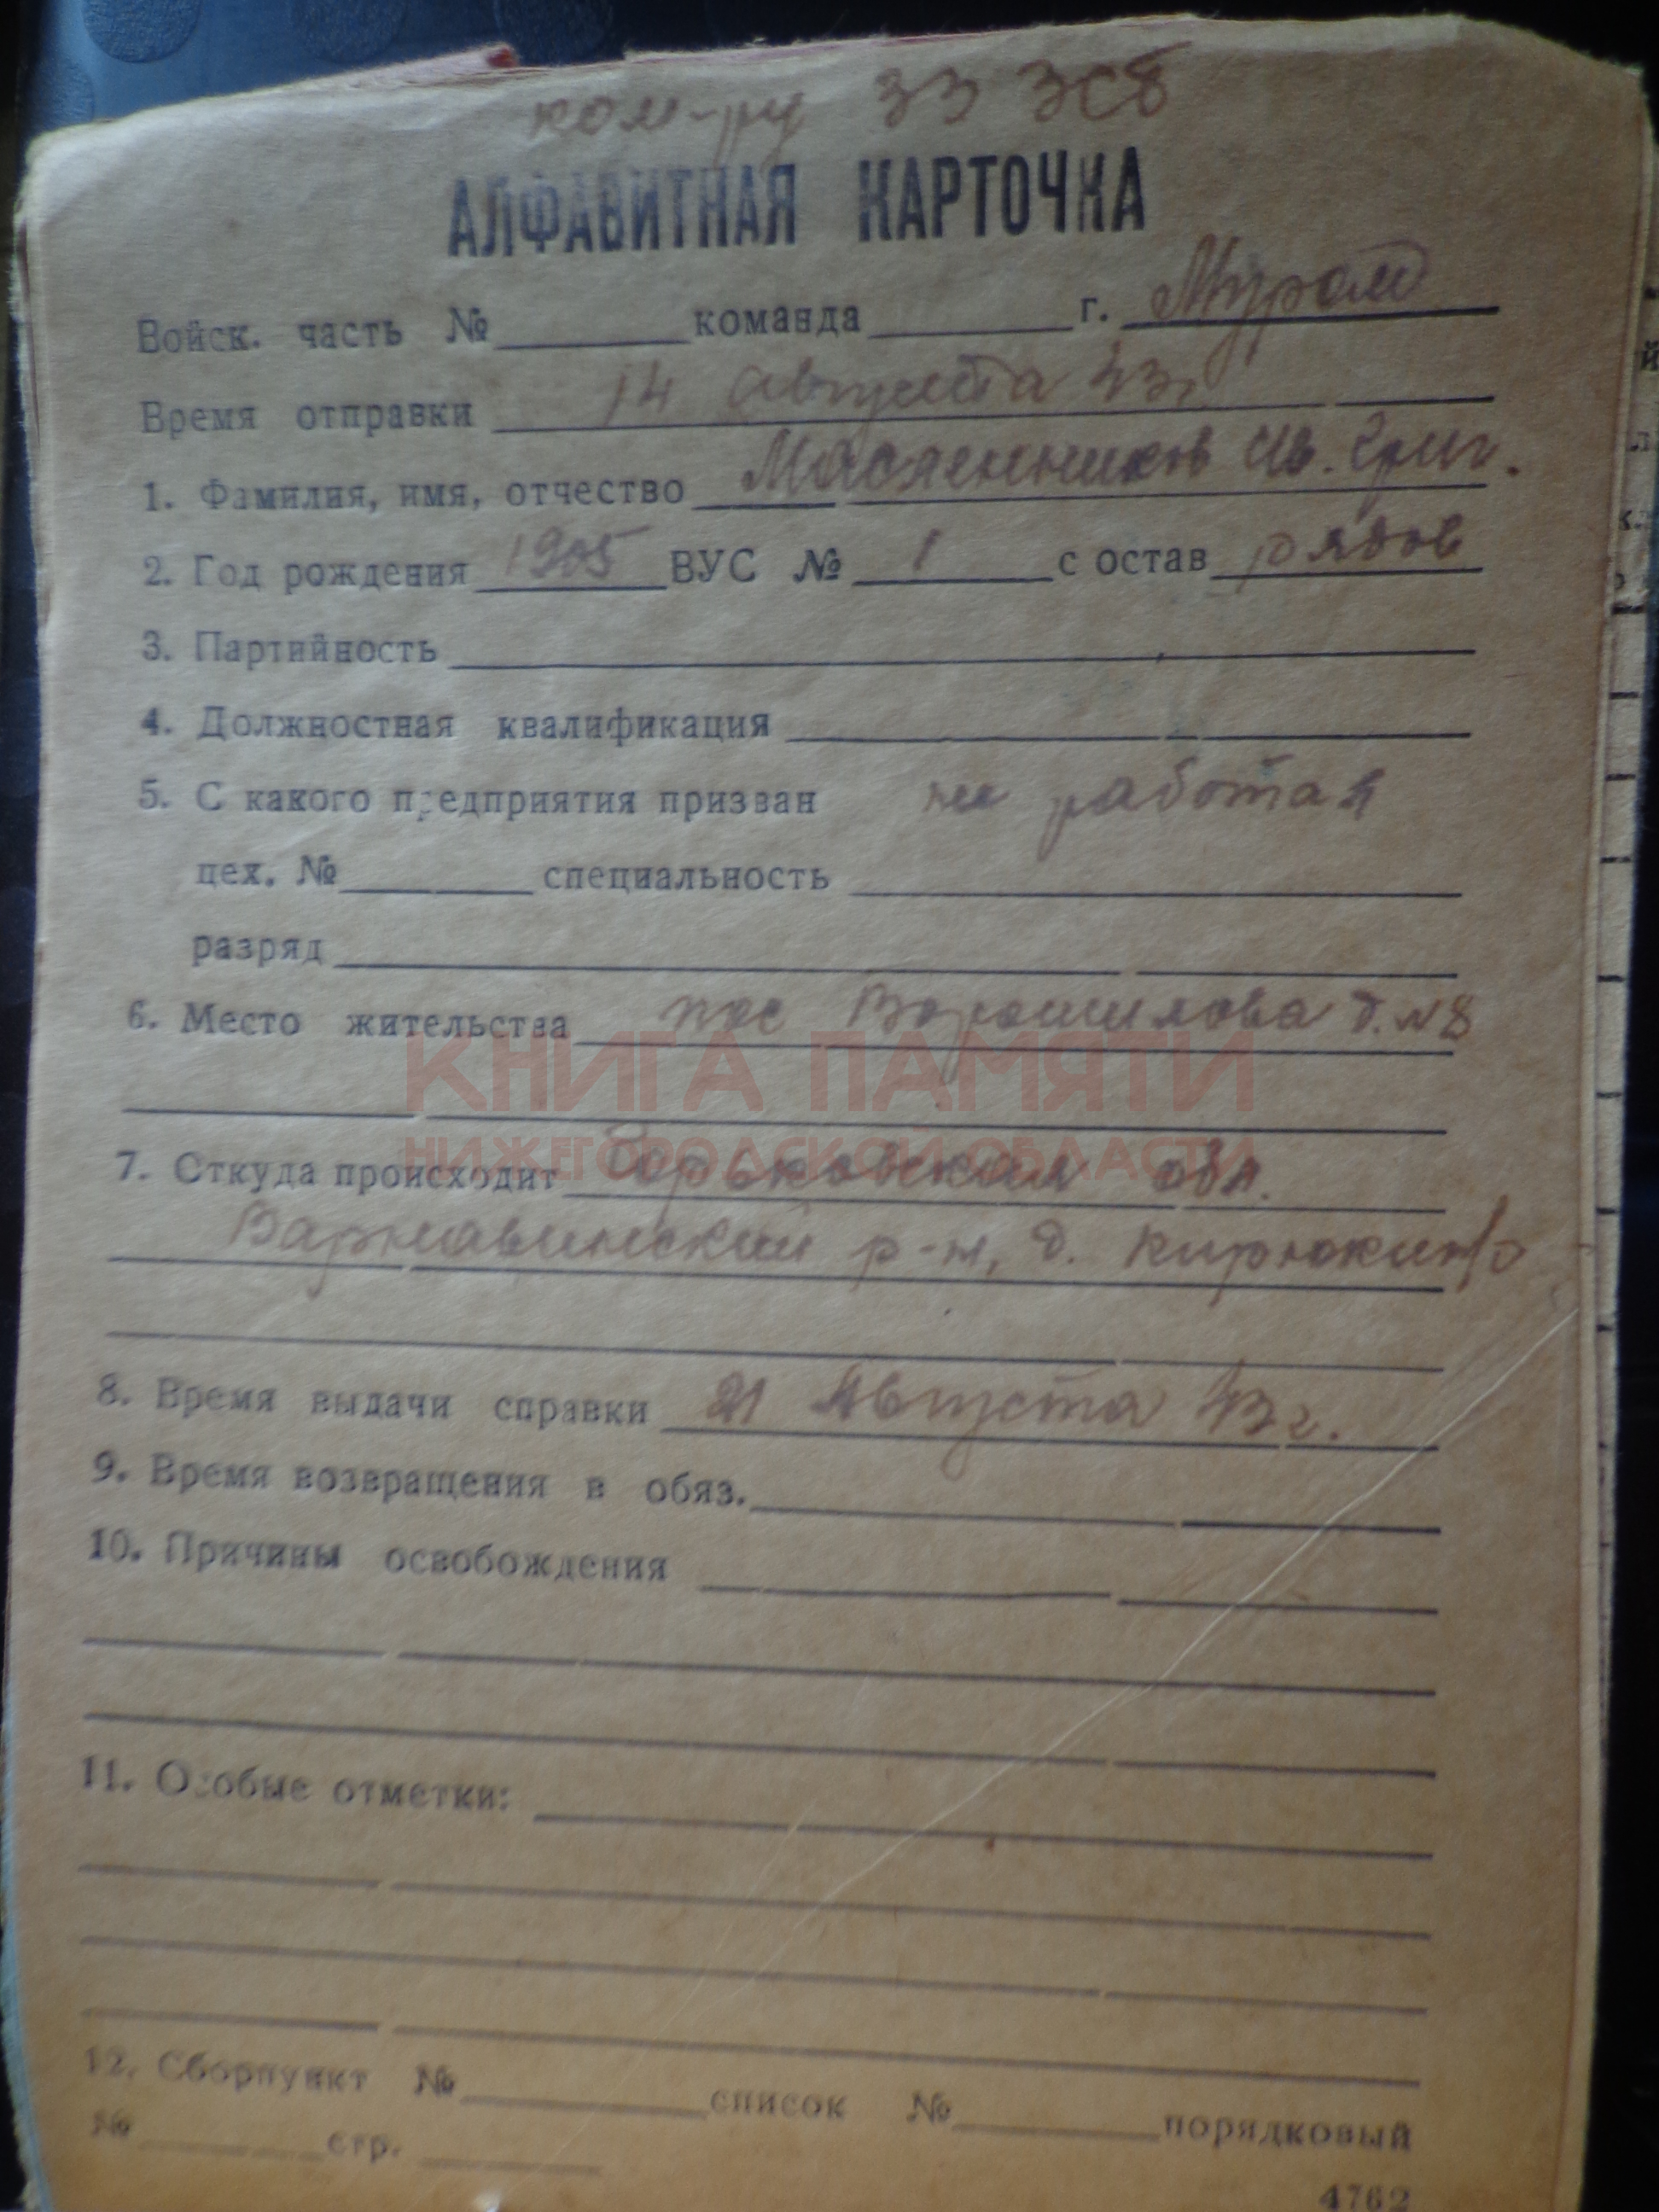 ком-ру 33 ЗСБ
АЛФАВИТНАЯ КАРТОЧКА
Войск. часть № команда г. Муром
Время отправки 14 августа 43г
1. Фамилия, имя, отчество Масленников Ив. Григ.
2. Год рождения 1905 ВУС № 1 состав рядов
3. Партийность
4. Должностная квалификация
5. С какого предприятия призван не работал
цех. № специальность
разряд
6. Место жительства пос Ворошилова д. №8
КНИГА ПАМЯТИ
НИЖЕГОРОДСКОЙ ОБЛАСТИ
7. Откуда происходит Горьковская обл.
Варнавинский р-н, д. Кирюкино
8. Время выдачи справки 21 Августа 43 г.
9. Время возвращения в обяз.
10. Причины освобождения
11. Особые отметки:
12. Сборпункт № список № порядковый
№ стр.
4762